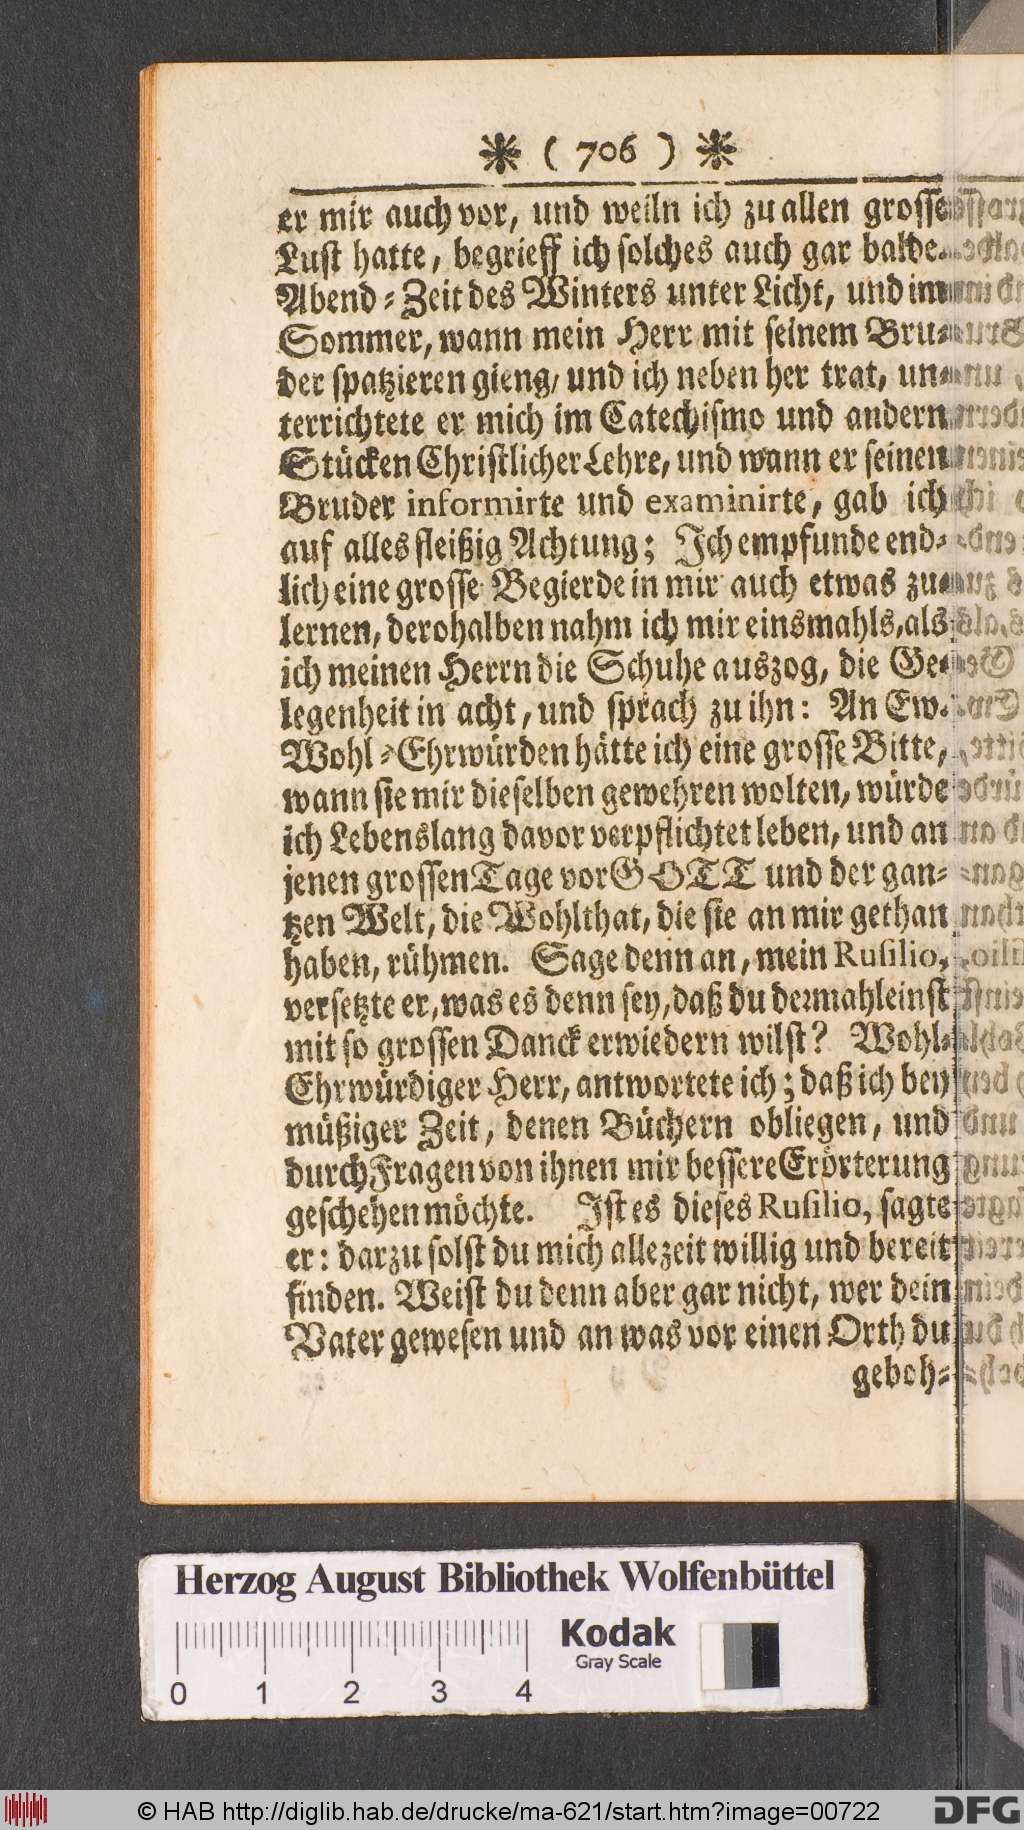 ❋ ( 706 ) ❋
er mir auch vor, und weiln ich zu allen grosse
Lust hatte, begrieff ich solches auch gar balde.
Abend-Zeit des Winters unter Licht, und im
Sommer, wann mein Herr mit seinem Bru-
der spatzieren gieng, und ich neben her trat, un-
terrichtete er mich im Catechismo und andern
Stücken Christlicher Lehre, und wann er seinen
Bruder informirte und examinirte, gab ich
auf alles fleißig Achtung; Ich empfunde end-
lich eine grosse Begierde in mir auch etwas zu
lernen, derohalben nahm ich mir einsmahls, als
ich meinen Herrn die Schuhe auszog, die Ge-
legenheit in acht, und sprach zu ihn: An Ew.
Wohl-Ehrwürden hätte ich eine grosse Bitte,
wann sie mir dieselben gewehren wolten, würde
ich Lebenslang davor verpflichtet leben, und an
jenen grossen Tage vor GOTT und der gan-
tzen Welt, die Wohlthat, die sie an mir gethan
haben, rühmen. Sage denn an, mein Rusilio,
versetzte er, was es denn sey, daß du dermahleinst
mit so grossen Danck erwiedern wilst? Wohl-
Ehrwürdiger Herr, antwortete ich; daß ich bey
müßiger Zeit, denen Büchern obliegen, und
durch Fragen von ihnen mir bessere Erörterung
geschehen möchte. Ist es dieses Rusilio, sagte
er: darzu solst du mich allezeit willig und bereit
finden. Weist du denn aber gar nicht, wer dein
Vater gewesen und an was vor einen Orth du
geboh-
Herzog August Bibliothek Wolfenbüttel
Kodak
Gray Scale
0 1 2 3 4
© HAB http://diglib.hab.de/drucke/ma-621/start.htm?image=00722
DFG